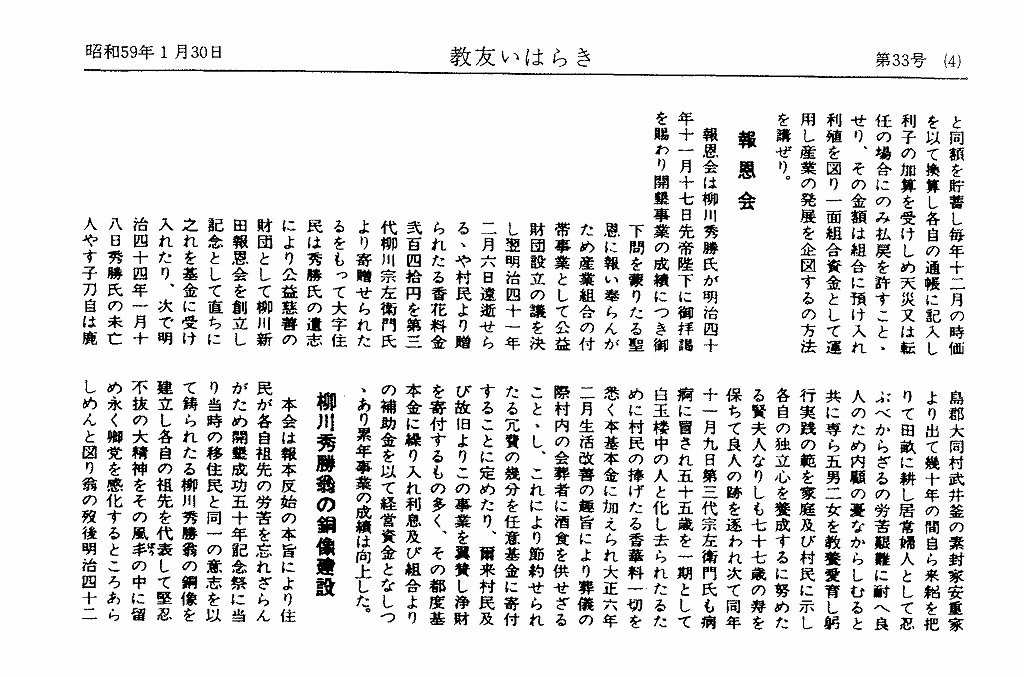 昭和59年1月30日
教友いはらき
第33号 (4)
と同額を貯蓄し毎年十二月の時価
を以て換算し各自の通帳に記入し
利子の加算を受けしめ天災又は転
任の場合にのみ払戻を許すこと、
せり、その金額は組合に預け入れ
利殖を図り一面組合資金として運
用し産業の発展を企図するの方法
を講ぜり。
報恩会
報恩会は柳川秀勝氏が明治四十
年十一月十七日先帝陛下に御拝謁
を賜わり開墾事業の成績につき御
下問を蒙りたる聖
恩に報い奉らんが
ため産業組合の付
帯事業として公益
財団設立の議を決
し翌明治四十一年
二月六日遠逝せら
るゝや村民より贈
られたる香花料金
弐百四拾円を第三
代柳川宗左衛門氏
より寄贈せられた
るをもって大字住
民は秀勝氏の遺志
により公益慈善の
財団として柳川新
田報恩会を創立し
記念として直ちに
之れを基金に受け
入れたり、次で明
治四十四年一月十
八日秀勝氏の未亡
人やす子刀自は鹿
島郡大同村武井釜の素封家安重家
より出て幾十年の間自ら来耜を把
りて田畝に耕し居常婦人として忍
ぶべからざるの労苦艱難に耐へ良
人のため内顧の憂なからしむると
共に専ら五男二女を教養愛育し躬
行実践の範を家庭及び村民に示し
各自の独立心を養成するに努めた
る賢夫人なりしも七十七歳の寿を
保ちて良人の跡を逐われ次て同年
十一月九日第三代宗左衛門氏も病
痾に冒され五十五歳を一期として
白玉楼中の人と化し去られたるた
めに村民の捧げたる香華料一切を
悉く本基本金に加えられ大正六年
二月生活改善の趣旨により葬儀の
際村内の会葬者に酒食を供せざる
ことゝし、これにより節約せられ
たる冗費の幾分を任意基金に寄付
することに定めたり、爾来村民及
び故旧よりこの事業を翼賛し浄財
を寄付するもの多く、その都度基
本金に繰り入れ利息及び組合より
の補助金を以て経営資金となしつ
ゝあり累年事業の成績は向上した。
柳川秀勝翁の銅像建設
本会は報本反始の本旨により住
民が各自祖先の労苦を忘れざらん
がため開墾成功五十年記念祭に当
り当時の移住民と同一の意志を以
て鋳られたる柳川秀勝翁の銅像を
建立し各自の祖先を代表して堅忍
不抜の大精神をその風丰の中に留
め永く郷党を感化するところあら
しめんと図り翁の歿後明治四十二